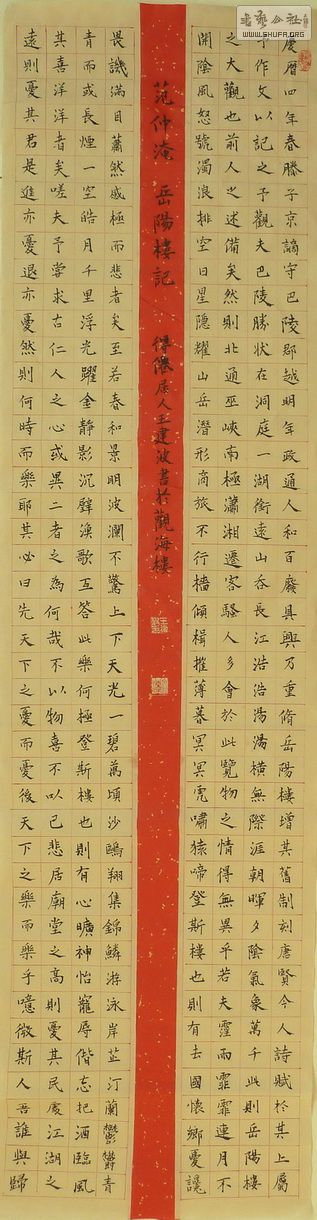 慶曆四年春滕子京謫守巴陵郡越明年政通人和百廢具興乃重脩岳陽樓增其舊制刻唐賢今人詩賦於其上屬
予作文以記之予觀夫巴陵勝狀在洞庭一湖銜遠山吞長江浩浩湯湯橫無際涯朝暉夕陰氣象萬千此則岳陽樓
之大觀也前人之述備矣然則北通巫峽南極瀟湘遷客騷人多會於此覽物之情得無異乎若夫霪雨霏霏連月不
開陰風怒號濁浪排空日星隱耀山岳潛形商旅不行檣傾楫摧薄暮冥冥虎嘯猿啼登斯樓也則有去國懷鄉憂讒
范仲淹 岳陽樓記 居人王建波書於觀海樓
畏譏滿目蕭然感極而悲者矣至若春和景明波瀾不驚上下天光一碧萬頃沙鷗翔集錦鱗游泳岸芷汀蘭鬱鬱青
青而或長煙一空皓月千里浮光躍金靜影沉璧漁歌互答此樂何極登斯樓也則有心曠神怡寵辱偕忘把酒臨風
其喜洋洋者矣嗟夫予嘗求古仁人之心或異二者之為何哉不以物喜不以己悲居廟堂之高則憂其民處江湖之
遠則憂其君是進亦憂退亦憂然則何時而樂耶其必曰先天下之憂而憂後天下之樂而樂乎噫微斯人吾誰與歸
WWW.SHUFA.ORG